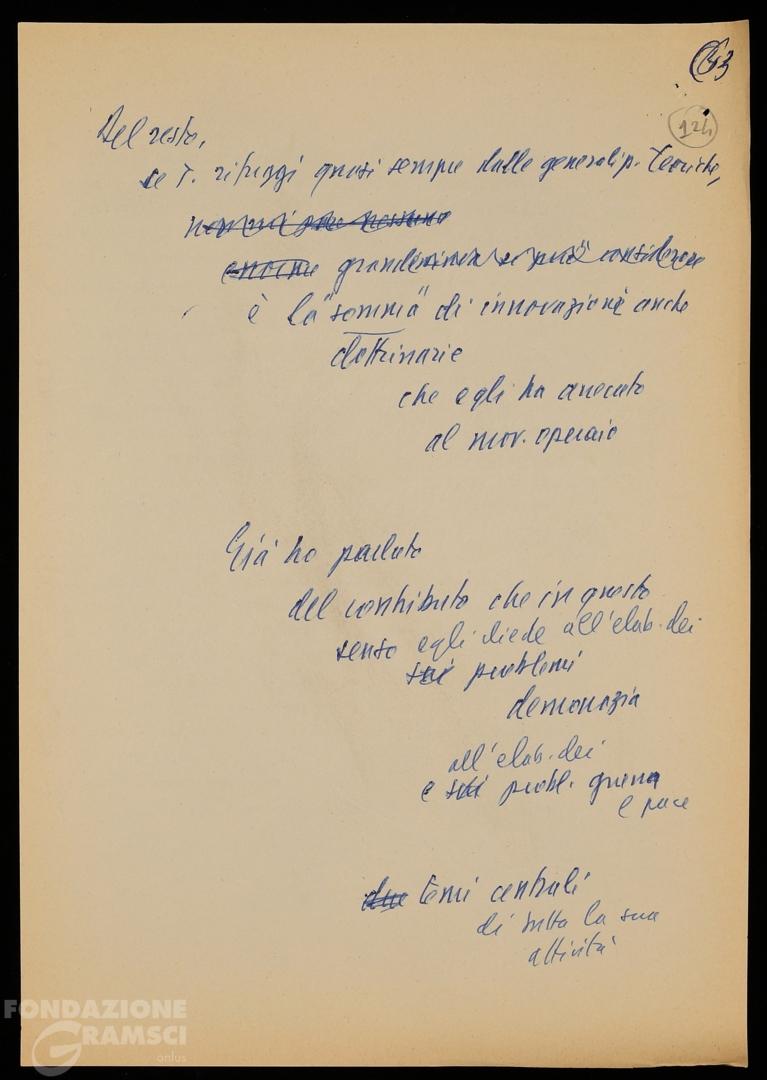 43
124
Del resto,
se T. rifuggì quasi sempre dalle generalizz. teoriche,
enorme grande
è la "somma" di innovazioni anche
dottrinarie
che egli ha arrecato
al mov. operaio
Già ho parlato
del contributo che in questo
senso egli diede all'elab. dei
sui problemi
democrazia
all'elab. dei
e sui probl. guerra
e pace
due temi centrali
di tutta la sua
attività
FONDAZIONE
GRAMSCI
onlus